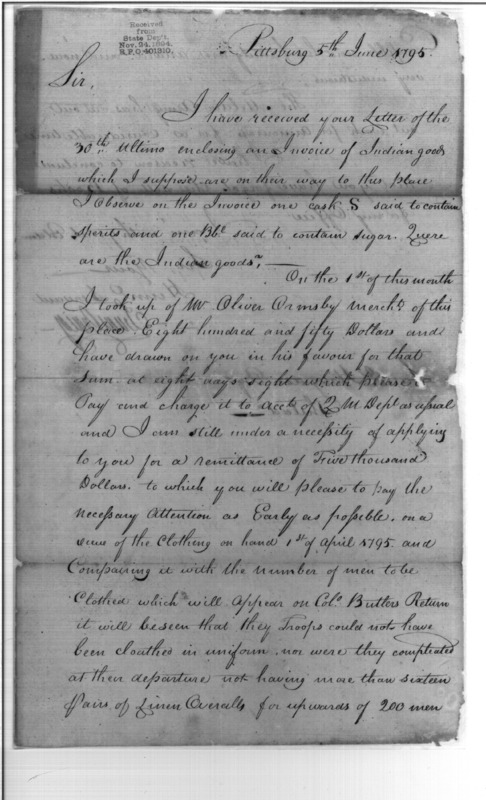 Received
from
State Dep't.
Nov. 24, 1894.
R.P.O. 401310.
Pittsburg 5th June 1795.
Sir,
I have received your Letter of the
30th Ultimo enclosing an Invoice of Indian goods
which I suppose are on their way to this place
I Observe on the Invoice one cask S said to contain
spirits and one Bbl said to contain Sugar. Quere
are the Indian goods, —
On the 1st of this month
I took up of Mr Oliver Ormsby Mercht of this
place Eight hundred and fifty Dollars and
have drawn on you in his favour for that
Sum at eight days sight which please
Pay and charge it to acct of Q M Dept as usual
and I am still under a necessity of applying
to you for a remittance of Five thousand
Dollars. to which you will please to pay the
necessary Attention as Early as possible. on a
view of the Clothing on hand 1st of April 1795 and
Comparing it with the number of men to be
Clothed which will appear on Colo. Butlers Return
it will be seen that they Troops could not have
been cloathed in uniform. nor were they compleated
at their departure not having more than sixteen
Pairs of Linen Overalls for upwards of 200 men